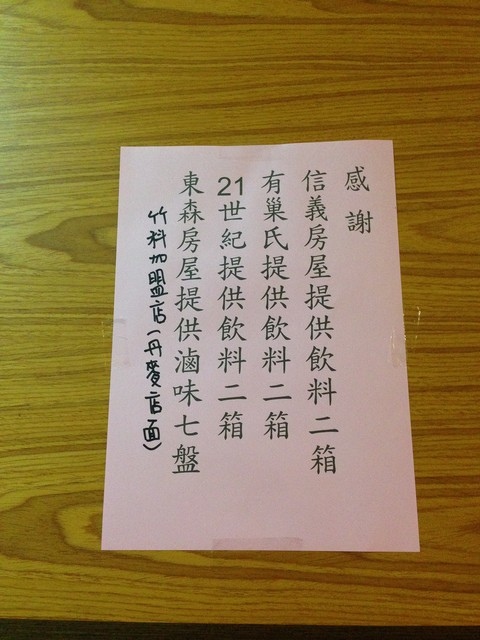 感謝
信義房屋提供飲料二箱
有巢氏提供飲料二箱
21世紀提供飲料二箱
東森房屋提供滷味七盤
竹科加盟店(丹麥店面)